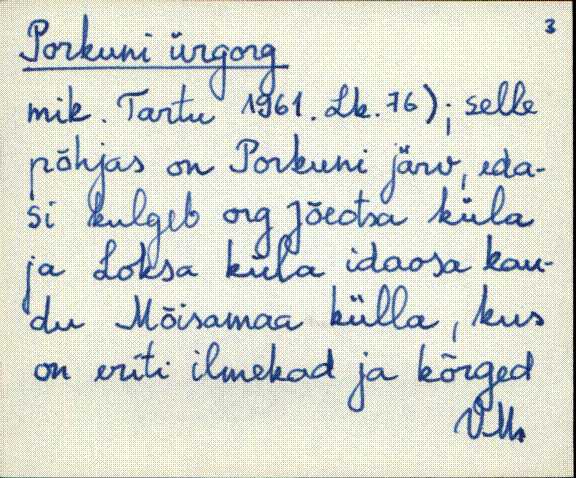 3
Porkuni ürgorg
mik. Tartu 1961. Lk. 76); selle
põhjas on Porkuni järv, eda-
si kulgeb org Jõeotsa küla
ja Loksa küla idaosa kau-
du Mõisamaa külla, kus
on eriti ilmekad ja kõrged